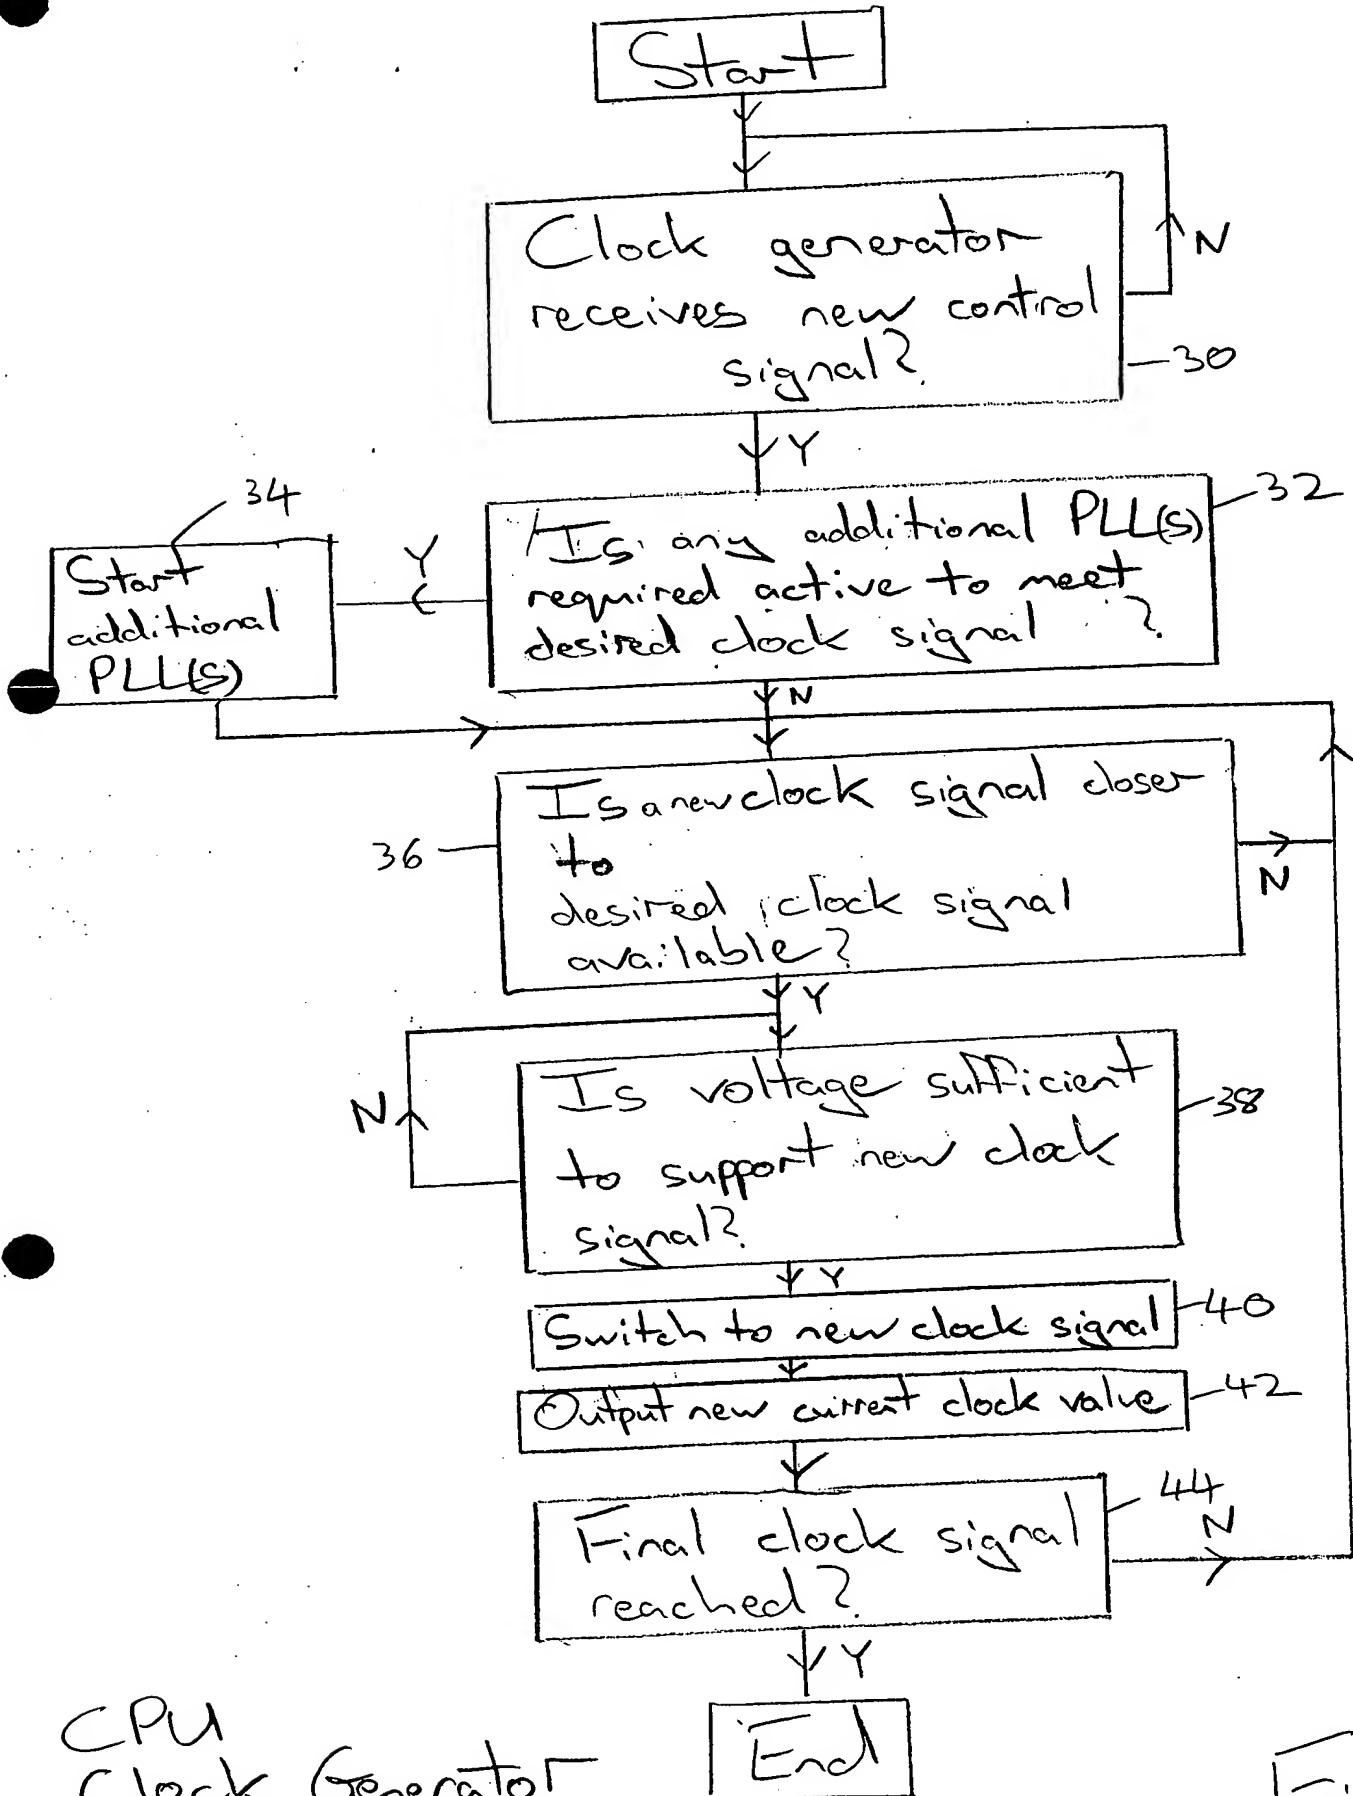 Start
Clock generator
receives new control
signal?
N
30
Y
32
34
Is any additional PLL(s)
required active to meet
desired clock signal ?
Y
Start
additional
PLL(s)
N
Is a new clock signal closer
to
desired clock signal
available?
36
N
Y
Is voltage sufficient
to support new clock
signal?
38
N
Y
Switch to new clock signal
40
Output new current clock value
42
Final clock signal
reached?
44
N
Y
End
CPU
Clock Generator